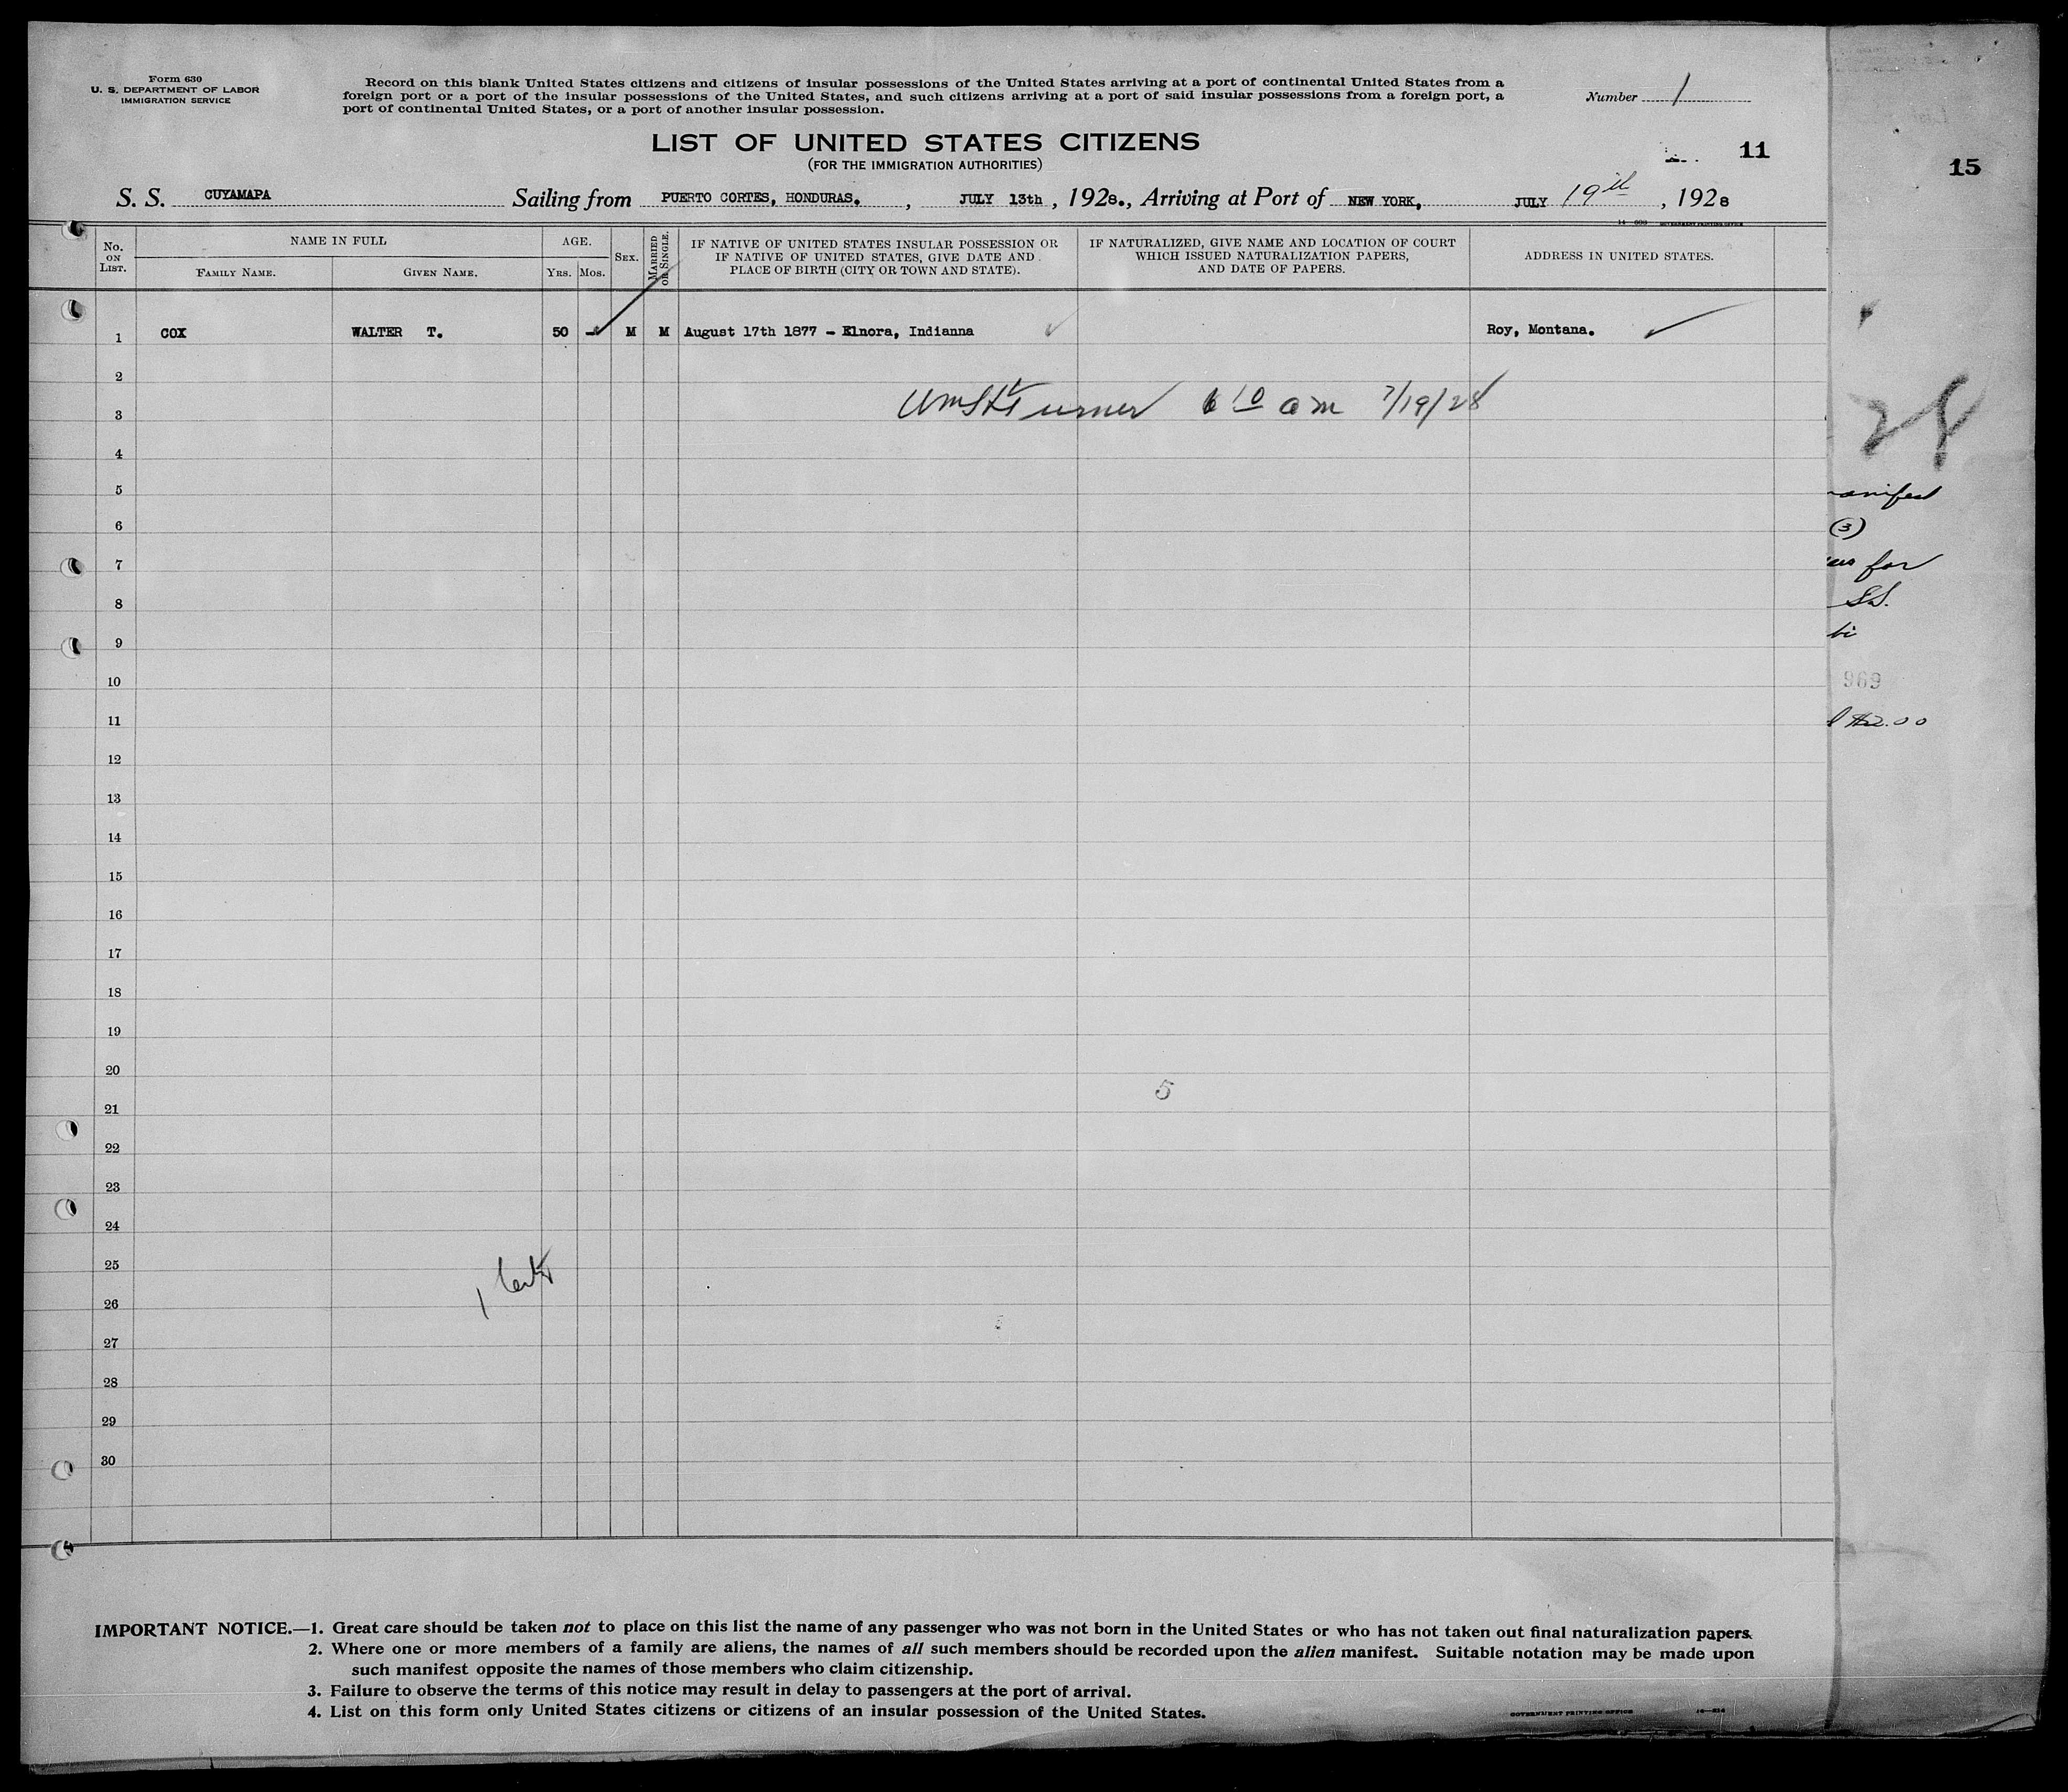 Form 630
U. S. DEPARTMENT OF LABOR
IMMIGRATION SERVICE
Record on this blank United States citizens and citizens of insular possessions of the United States arriving at a port of continental United States from a
foreign port or a port of the insular possessions of the United States, and such citizens arriving at a port of said insular possessions from a foreign port, a
port of continental United States, or a port of another insular possession.
Number 1
LIST OF UNITED STATES CITIZENS
(FOR THE IMMIGRATION AUTHORITIES)
11
15
S. S. CUYAMAPA Sailing from PUERTO CORTES, HONDURAS. , JULY 13th , 1928., Arriving at Port of NEW YORK, JULY 19th , 1928
No. ON LIST.
NAME IN FULL
FAMILY NAME.
GIVEN NAME.
AGE.
YRS.
MOS.
SEX.
MARRIED OR SINGLE.
IF NATIVE OF UNITED STATES INSULAR POSSESSION OR
IF NATIVE OF UNITED STATES, GIVE DATE AND
PLACE OF BIRTH (CITY OR TOWN AND STATE).
IF NATURALIZED, GIVE NAME AND LOCATION OF COURT
WHICH ISSUED NATURALIZATION PAPERS,
AND DATE OF PAPERS.
ADDRESS IN UNITED STATES.
1 COX WALTER T. 50 - M M August 17th 1877 - Elnora, Indianna Roy, Montana.
2
3 Turner 6 10 am 7/19/28
28
4
5
anifest
6
(3)
7
for
8
SS.
9
10
969
11
$2.00
12
13
14
15
16
17
18
19
20
5
21
22
23
24
25
1
26
27
28
29
30
IMPORTANT NOTICE.—1. Great care should be taken not to place on this list the name of any passenger who was not born in the United States or who has not taken out final naturalization papers.
2. Where one or more members of a family are aliens, the names of all such members should be recorded upon the alien manifest. Suitable notation may be made upon
such manifest opposite the names of those members who claim citizenship.
3. Failure to observe the terms of this notice may result in delay to passengers at the port of arrival.
4. List on this form only United States citizens or citizens of an insular possession of the United States.
GOVERNMENT PRINTING OFFICE